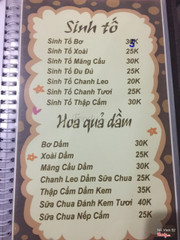 Sinh tố
Sinh Tố Bơ 35K
Sinh Tố Xoài 25K
Sinh Tố Mãng Cầu 30K
Sinh Tố Đu Đủ 25K
Sinh Tố Chanh Leo 20K
Sinh Tố Chanh Tươi 25K
Sinh Tố Thập Cẩm 30K
Hoa quả dầm
Bơ Dầm 30K
Xoài Dầm 25K
Mãng Cầu Dầm 30K
Chanh Leo Dầm Sữa Chua 25K
Thập Cẩm Dầm Kem 35K
Sữa Chua Đánh Kem Tươi 40K
Sữa Chua Nếp Cẩm 25K